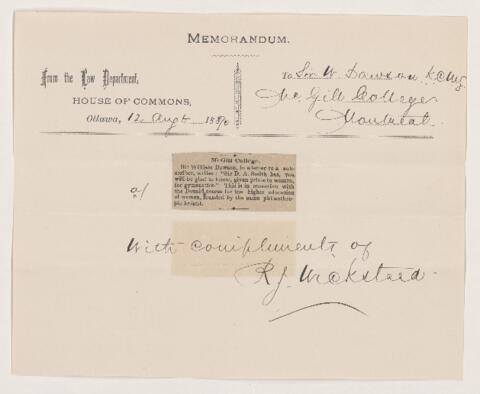 MEMORANDUM.
From the Law Department,
HOUSE OF COMMONS,
Ottawa, 12 Augt 188
To Sir W. Dawson K.C.M.G.
Mc Gill College
Montreal.
McGill College.
Sir William Dawson, in a letter to a sub-
scriber, writes: "Sir D. A. Smith has, you
will be glad to know, given prizes to women,
for gymnastics." This is in connection with
the Donald course for the higher education
of women, founded by the same philanthro-
pic knight.
With compliments of
R J. Wicksteed.